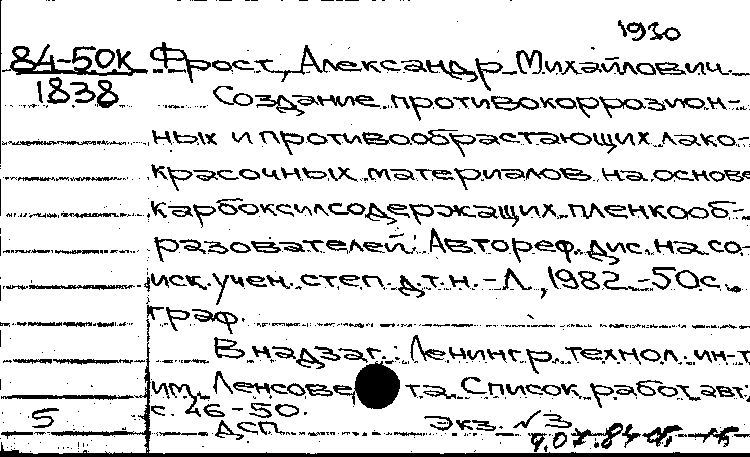 1930
84-50к Фрост, Александр Михайлович
1838 Создание противокоррозион-
ных и противообрастающих лако-
красочных материалов на основе
карбоксилсодержащих пленкооб-
разователей: Автореф. дис. на со-
иск. учен. степ. д.т.н. - Л., 1982. - 50 с.
граф.
В надзаг.: Ленингр. технол. ин-т
им. Ленсовета. Список работ авт.
с. 46-50.
5 ДСП Экз. √ 3
9.07.84